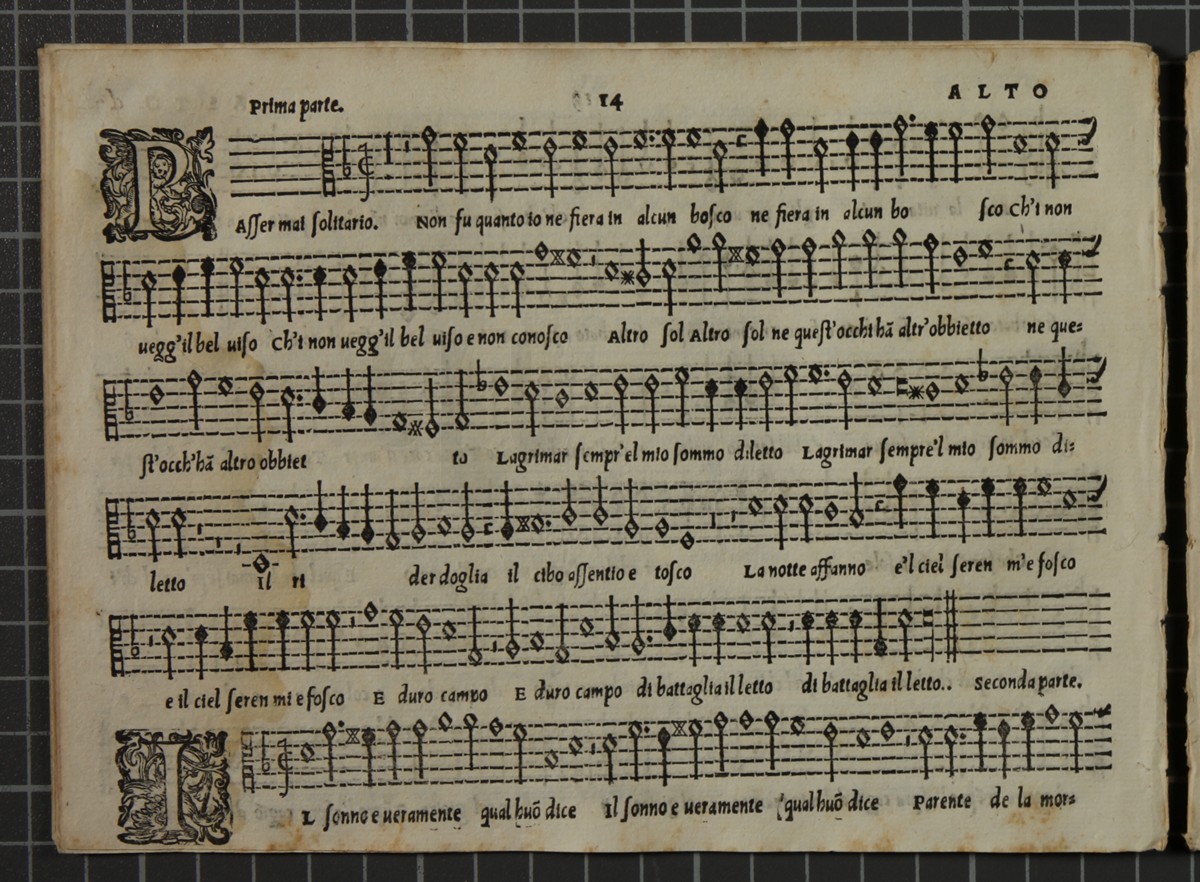 Prima parte. 14 ALTO
PAſſer mai ſolitario. Non fu quanto io ne fiera in alcun boſco ne fiera in alcun bo ſco Ch'i non
uegg'il bel uiſo Ch'i non uegg'il bel uiſo e non conoſco Altro ſol Altro ſol ne queſt'occhi hã altr'obbietto ne que=
ſt'occh'hã altro obbiet to Lagrimar ſempr'el mio ſommo diletto Lagrimar ſempre'l mio ſommo di=
letto Il ri der doglia il cibo aſſentio e toſco La notte affanno e'l ciel ſeren m'e foſco
e il ciel ſeren mi e foſco E duro campo E duro campo di battaglia il letto di battaglia il letto.. Seconda parte.
IL ſonno e ueramente qual huõ dice Il ſonno e ueramente qual huõ dice Parente de la mor=